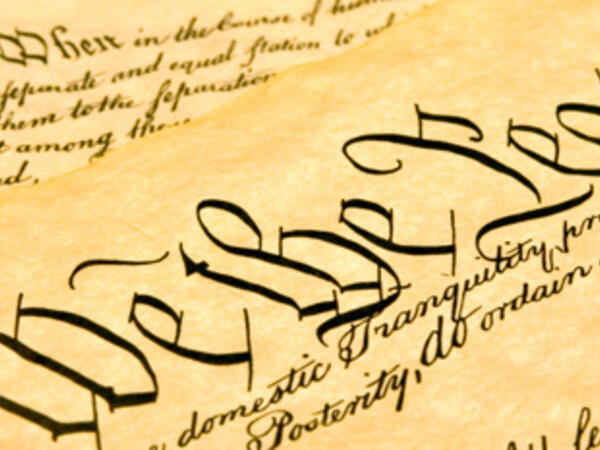 When in the Course of huma
separate and equal station to w
hem to the separation
t among
ed,
We the Peo
domestic Tranquility, pr
Posterity, do ordain